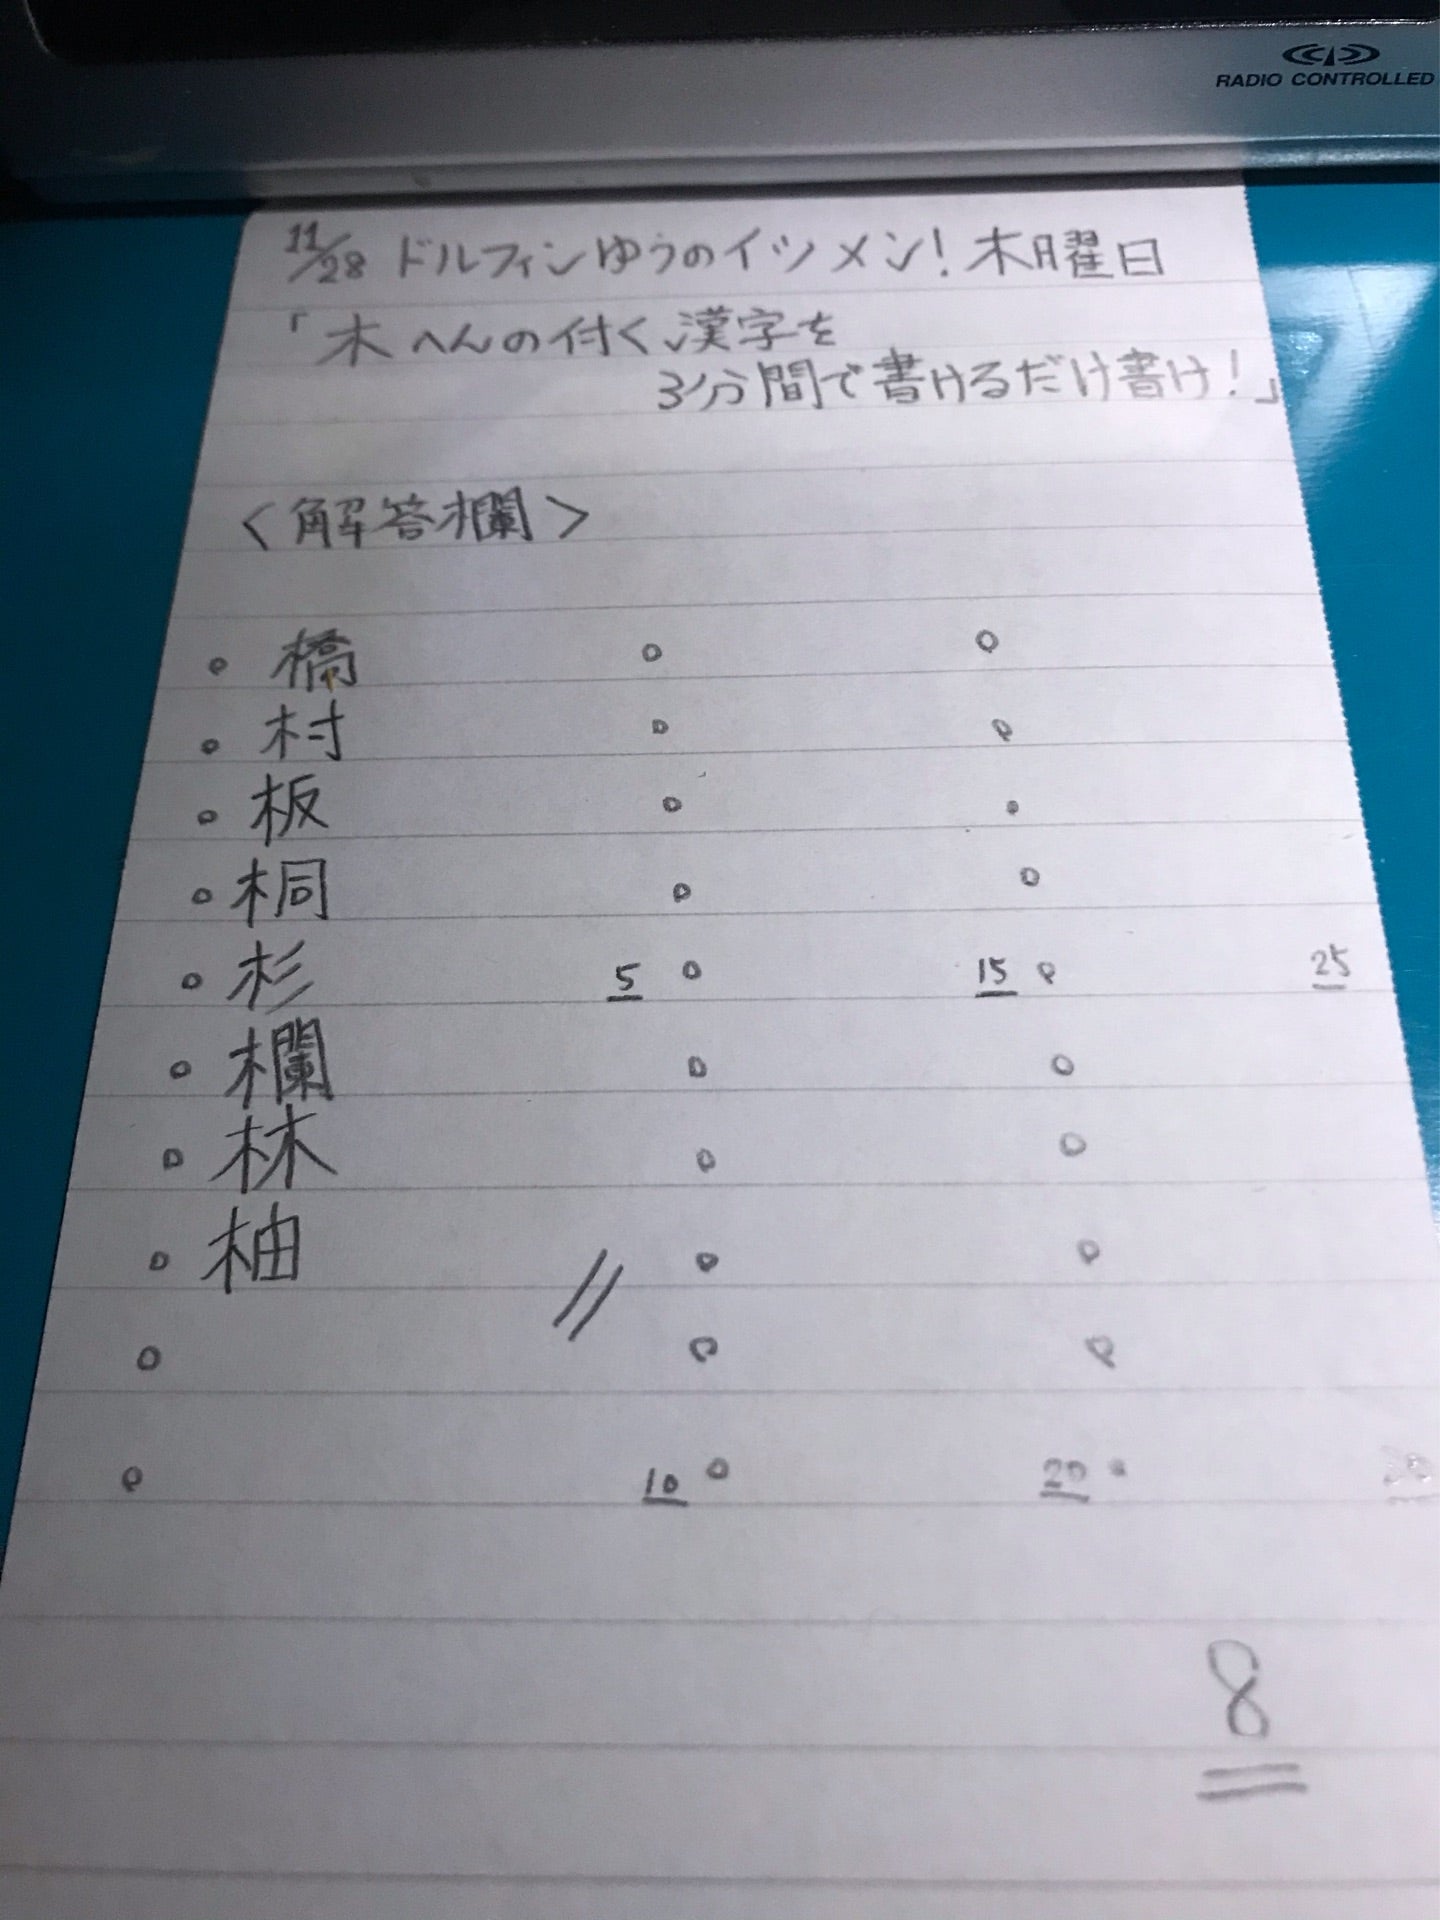 RADIO CONTROLLED
11/28 ドルフィンゆうのイツメン！木曜日
「木へんの付く漢字を
3分間で書けるだけ書け！」
<解答欄>
。橋 。 。
。村 。 。
。板 。 。
。桐 。 。
。杉 5 。 15 。 25
。欄 。 。
。林 。 。
。柚 // 。 。
。 。 。
。 10 。 20 。 30
8